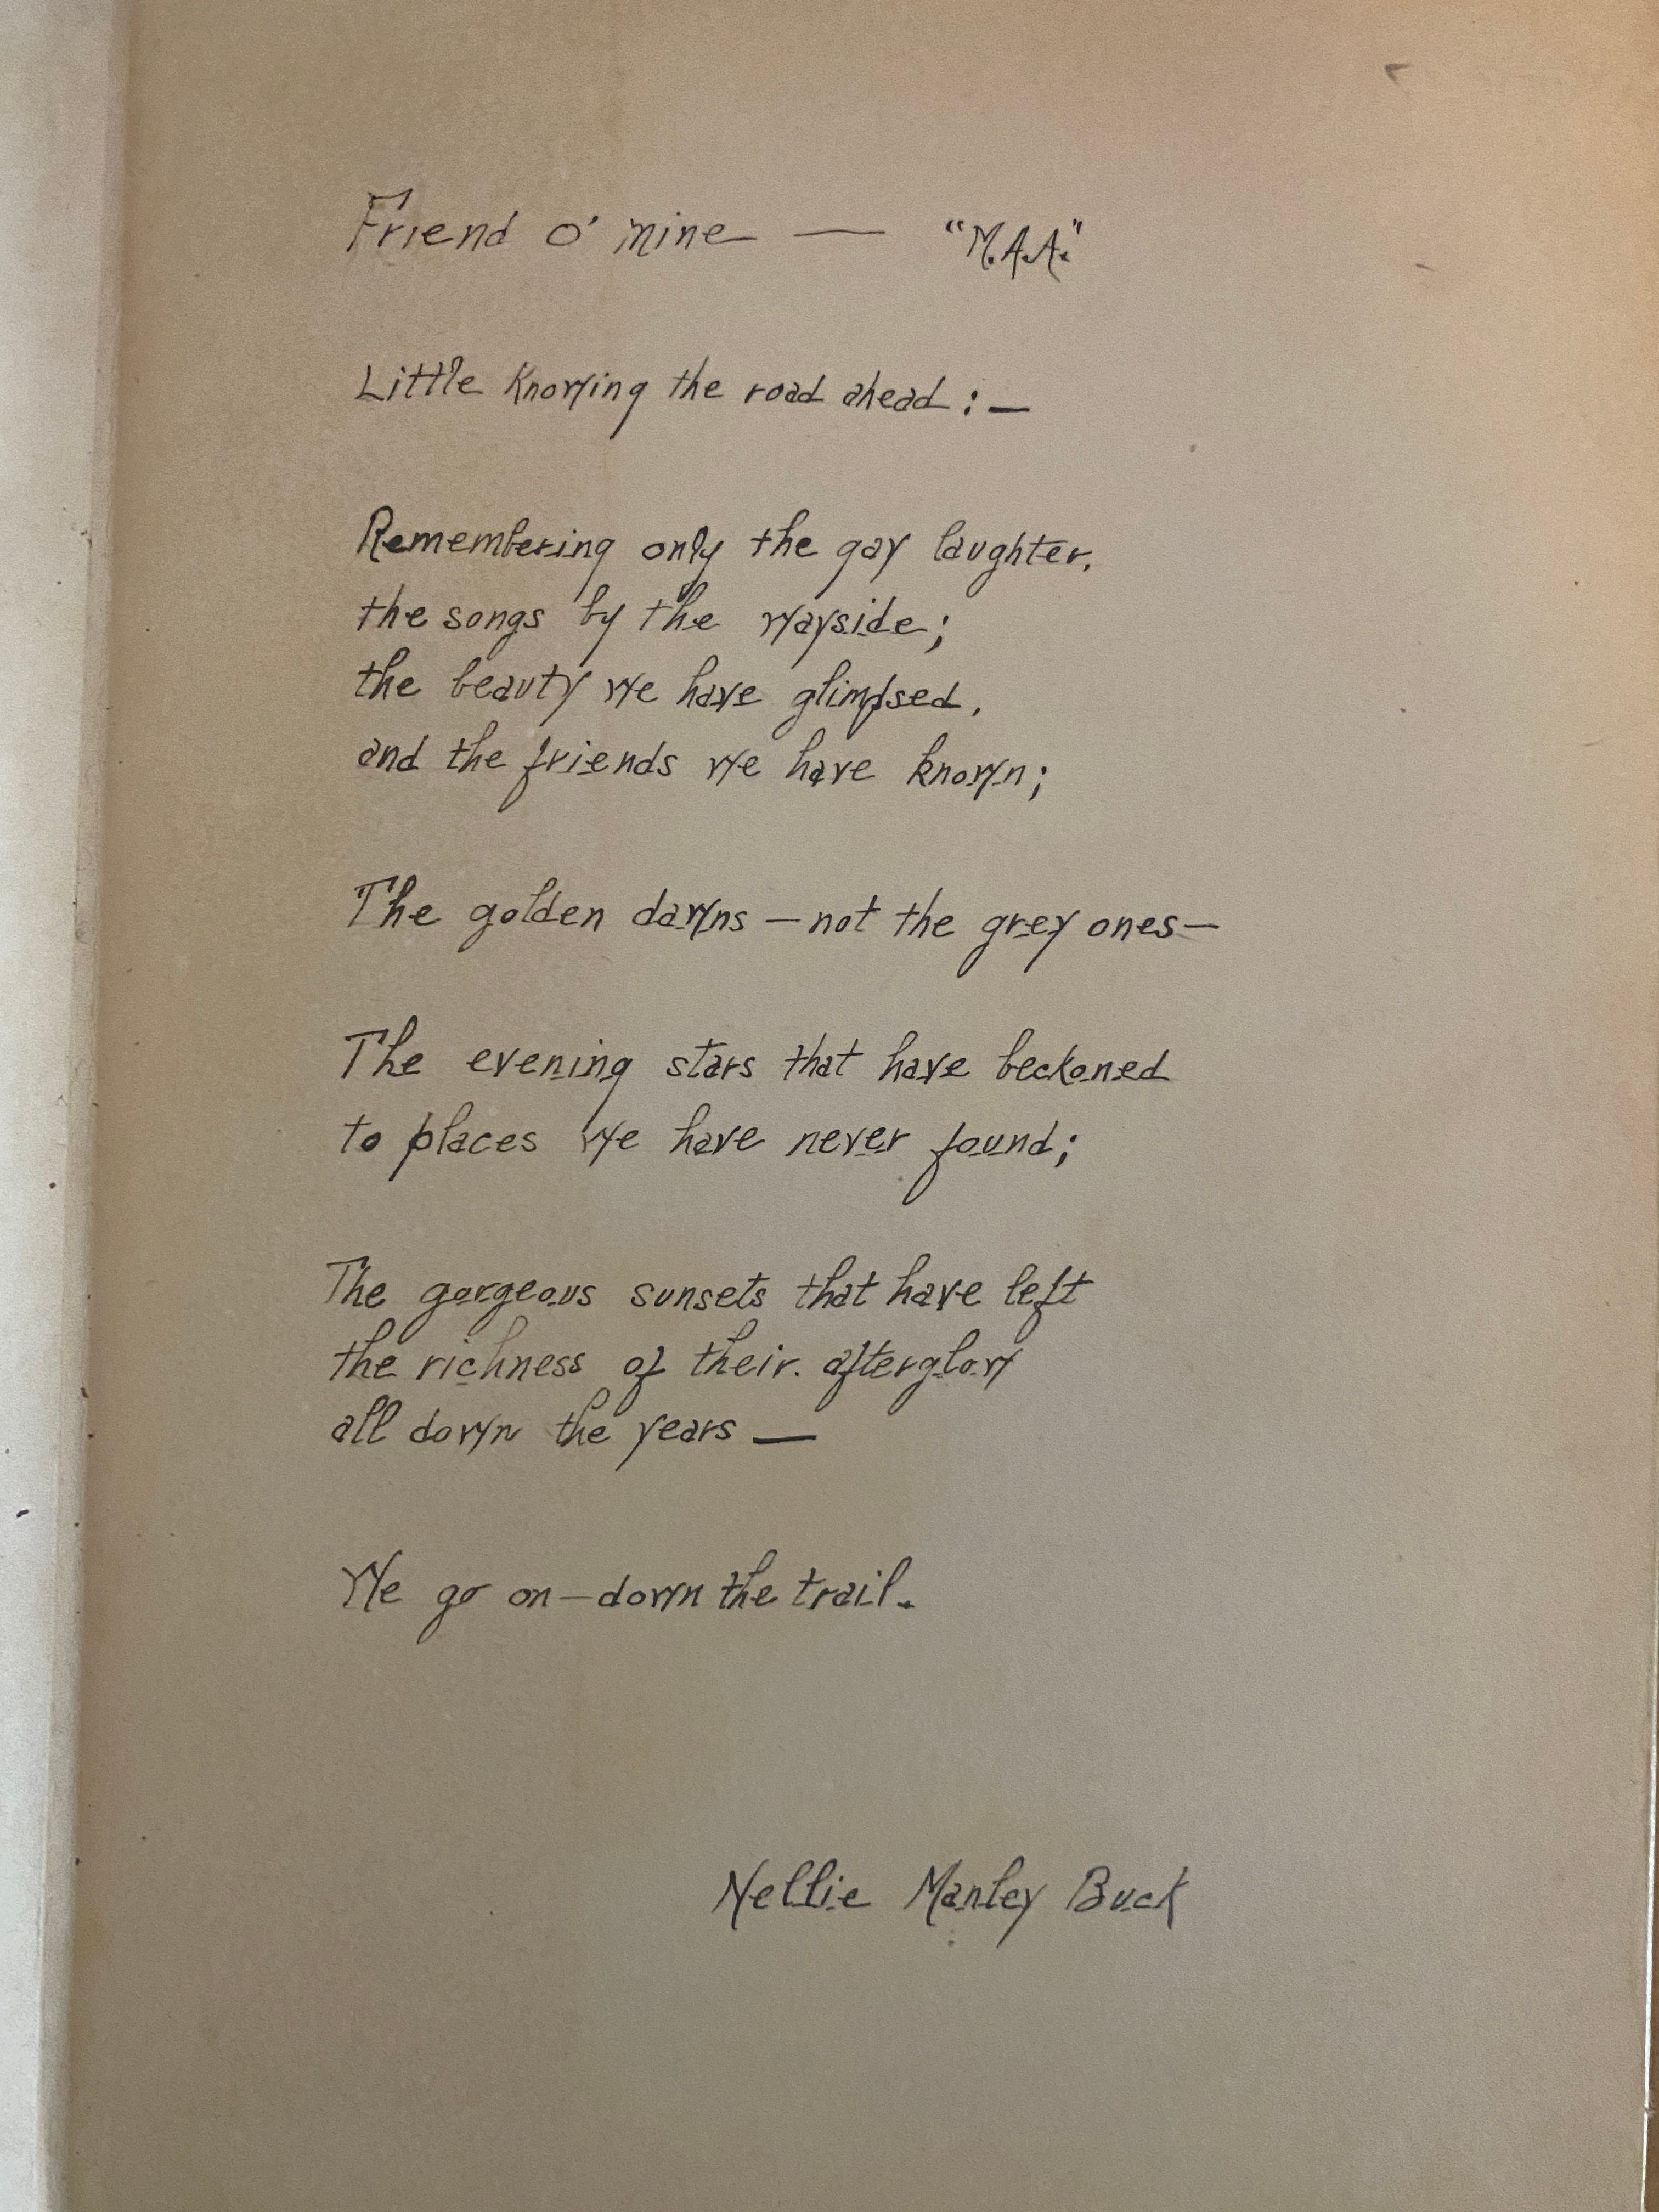 Friend o' mine — "M.A.A."
Little Knowing the road ahead: —
Remembering only the gay laughter,
the songs by the wayside;
the beauty we have glimpsed,
and the friends we have known;
The golden dawns — not the grey ones —
The evening stars that have beckoned
to places we have never found;
The gorgeous sunsets that have left
the richness of their. afterglow
all down the years —
We go on — down the trail.
Nellie Manley Buck